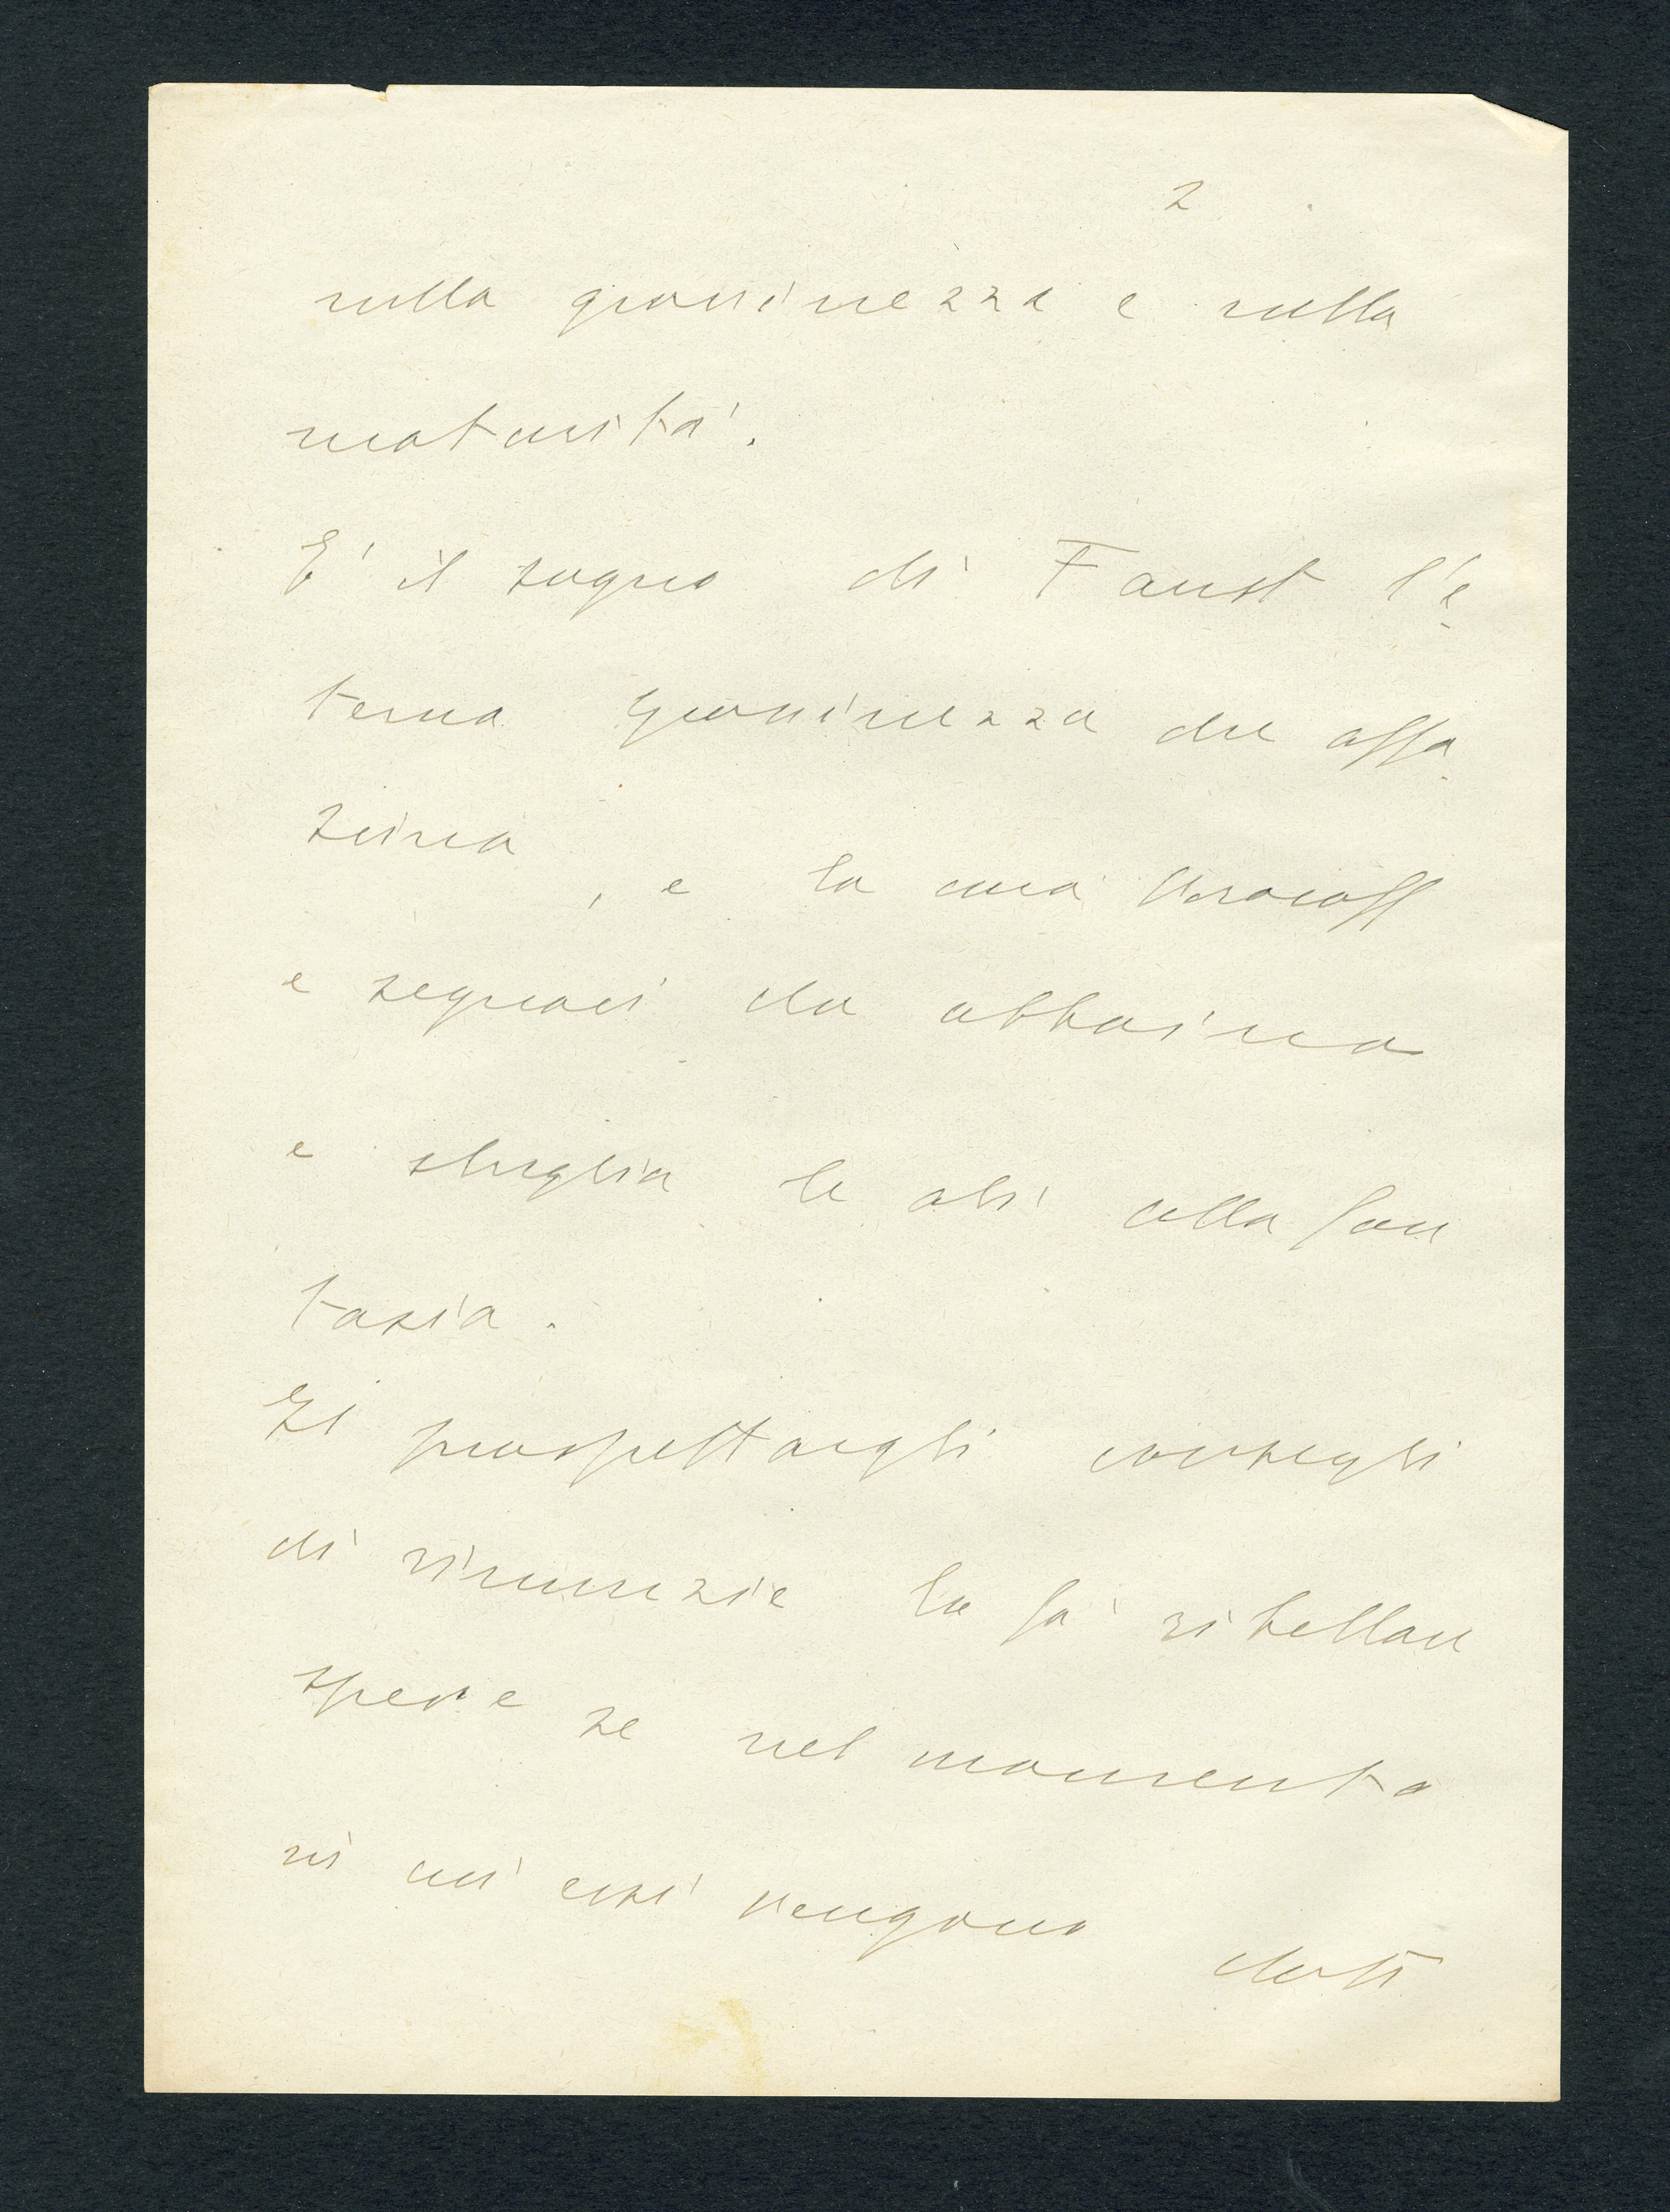 2
sulla giovinezza e sulla
maturità.
E' il sogno di Faust l'e
terna giovinezza che affa
scina, e la cura Voronoff
e seguaci da abbaina
e sbriglia le ali alla fan
tasia.
Il prospettargli consegli
di rinunzie la fa' ribellare
specie se nel momento
in cui essi vengono dati